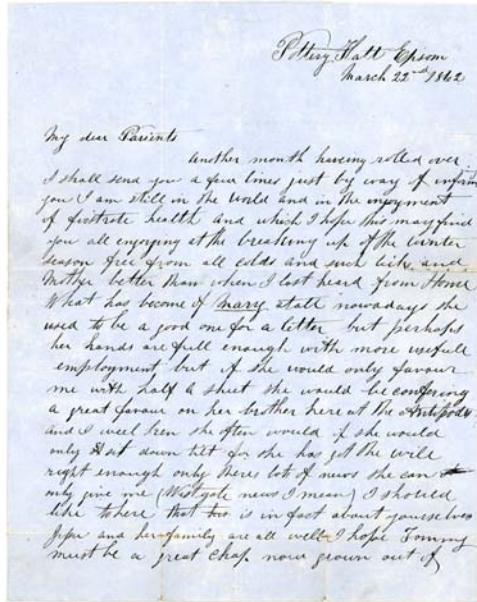 Pottery Flatt Epsom
March 22nd 1862
My dear Parients
Another month having rolled over
I shall send you a few lines just by way of inform
you I am still in the World and in the injoyment
of firstrate health and which I hope this may find
you all enjoying at the breaking up of the winter
season free from all colds and such like and
Mother better than when I last heard from Home
What has become of Mary atall nowadays she
used to be a good one for a letter but perhaps
her hands are full enough with more usefull
employment but if she would only favour
me with half a sheet she would be confering
a great favour on her brother here at the Antipods
and I weel ken she often would if she would
only sit down tilt for she has got the will
right enough only theres lots of news she can
only give me (Westgate news I mean) I should
like to here that is in fact about yourselves
and her family are all well I hope Tommy
must be a great chap now grown out of